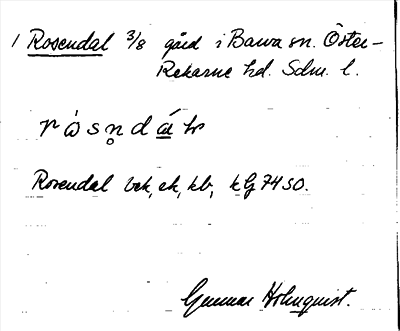 1 Rosendal 3/8 gård i Barva sn. Öster-
Rekarne hd. Sdm. l.
Rosendal bek, ek, kb, kG 74 SO.
Gunnar Holmquist.